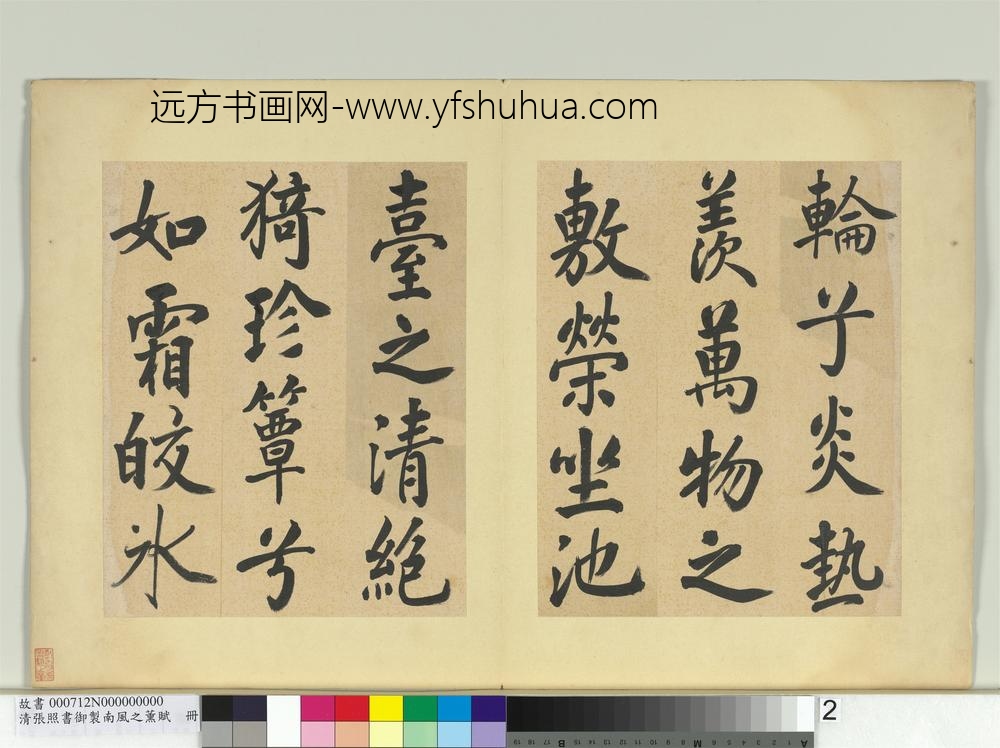 远方书画网-www.yfshuhua.com
輪兮炎熱
羨萬物之
敷榮坐池
臺之清絕
猗珍簟兮
如霜皎冰
故書 000712N000000000
清張照書御製南風之薰賦 冊
2